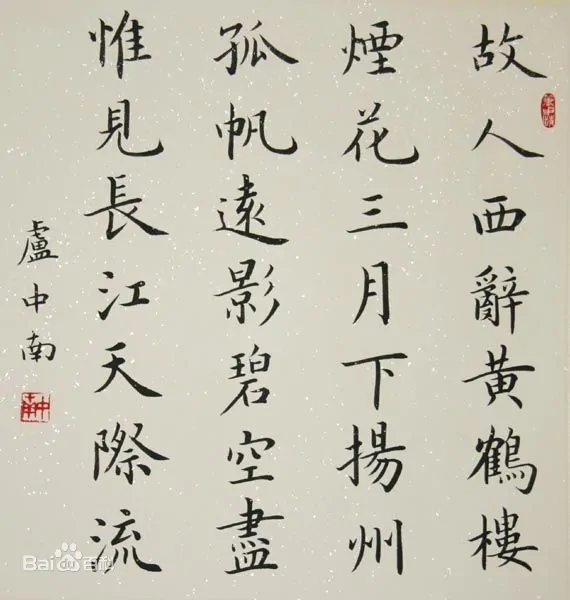 故人西辭黃鶴樓
煙花三月下揚州
孤帆遠影碧空盡
惟見長江天際流
盧中南
Bai百科